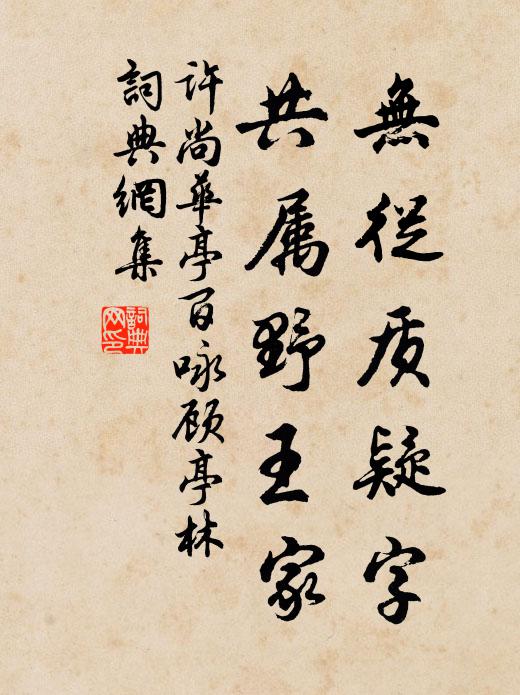 無從质疑字
共属野王家
许尚華亭百咏顾亭林
詞典網集
詞典
网印